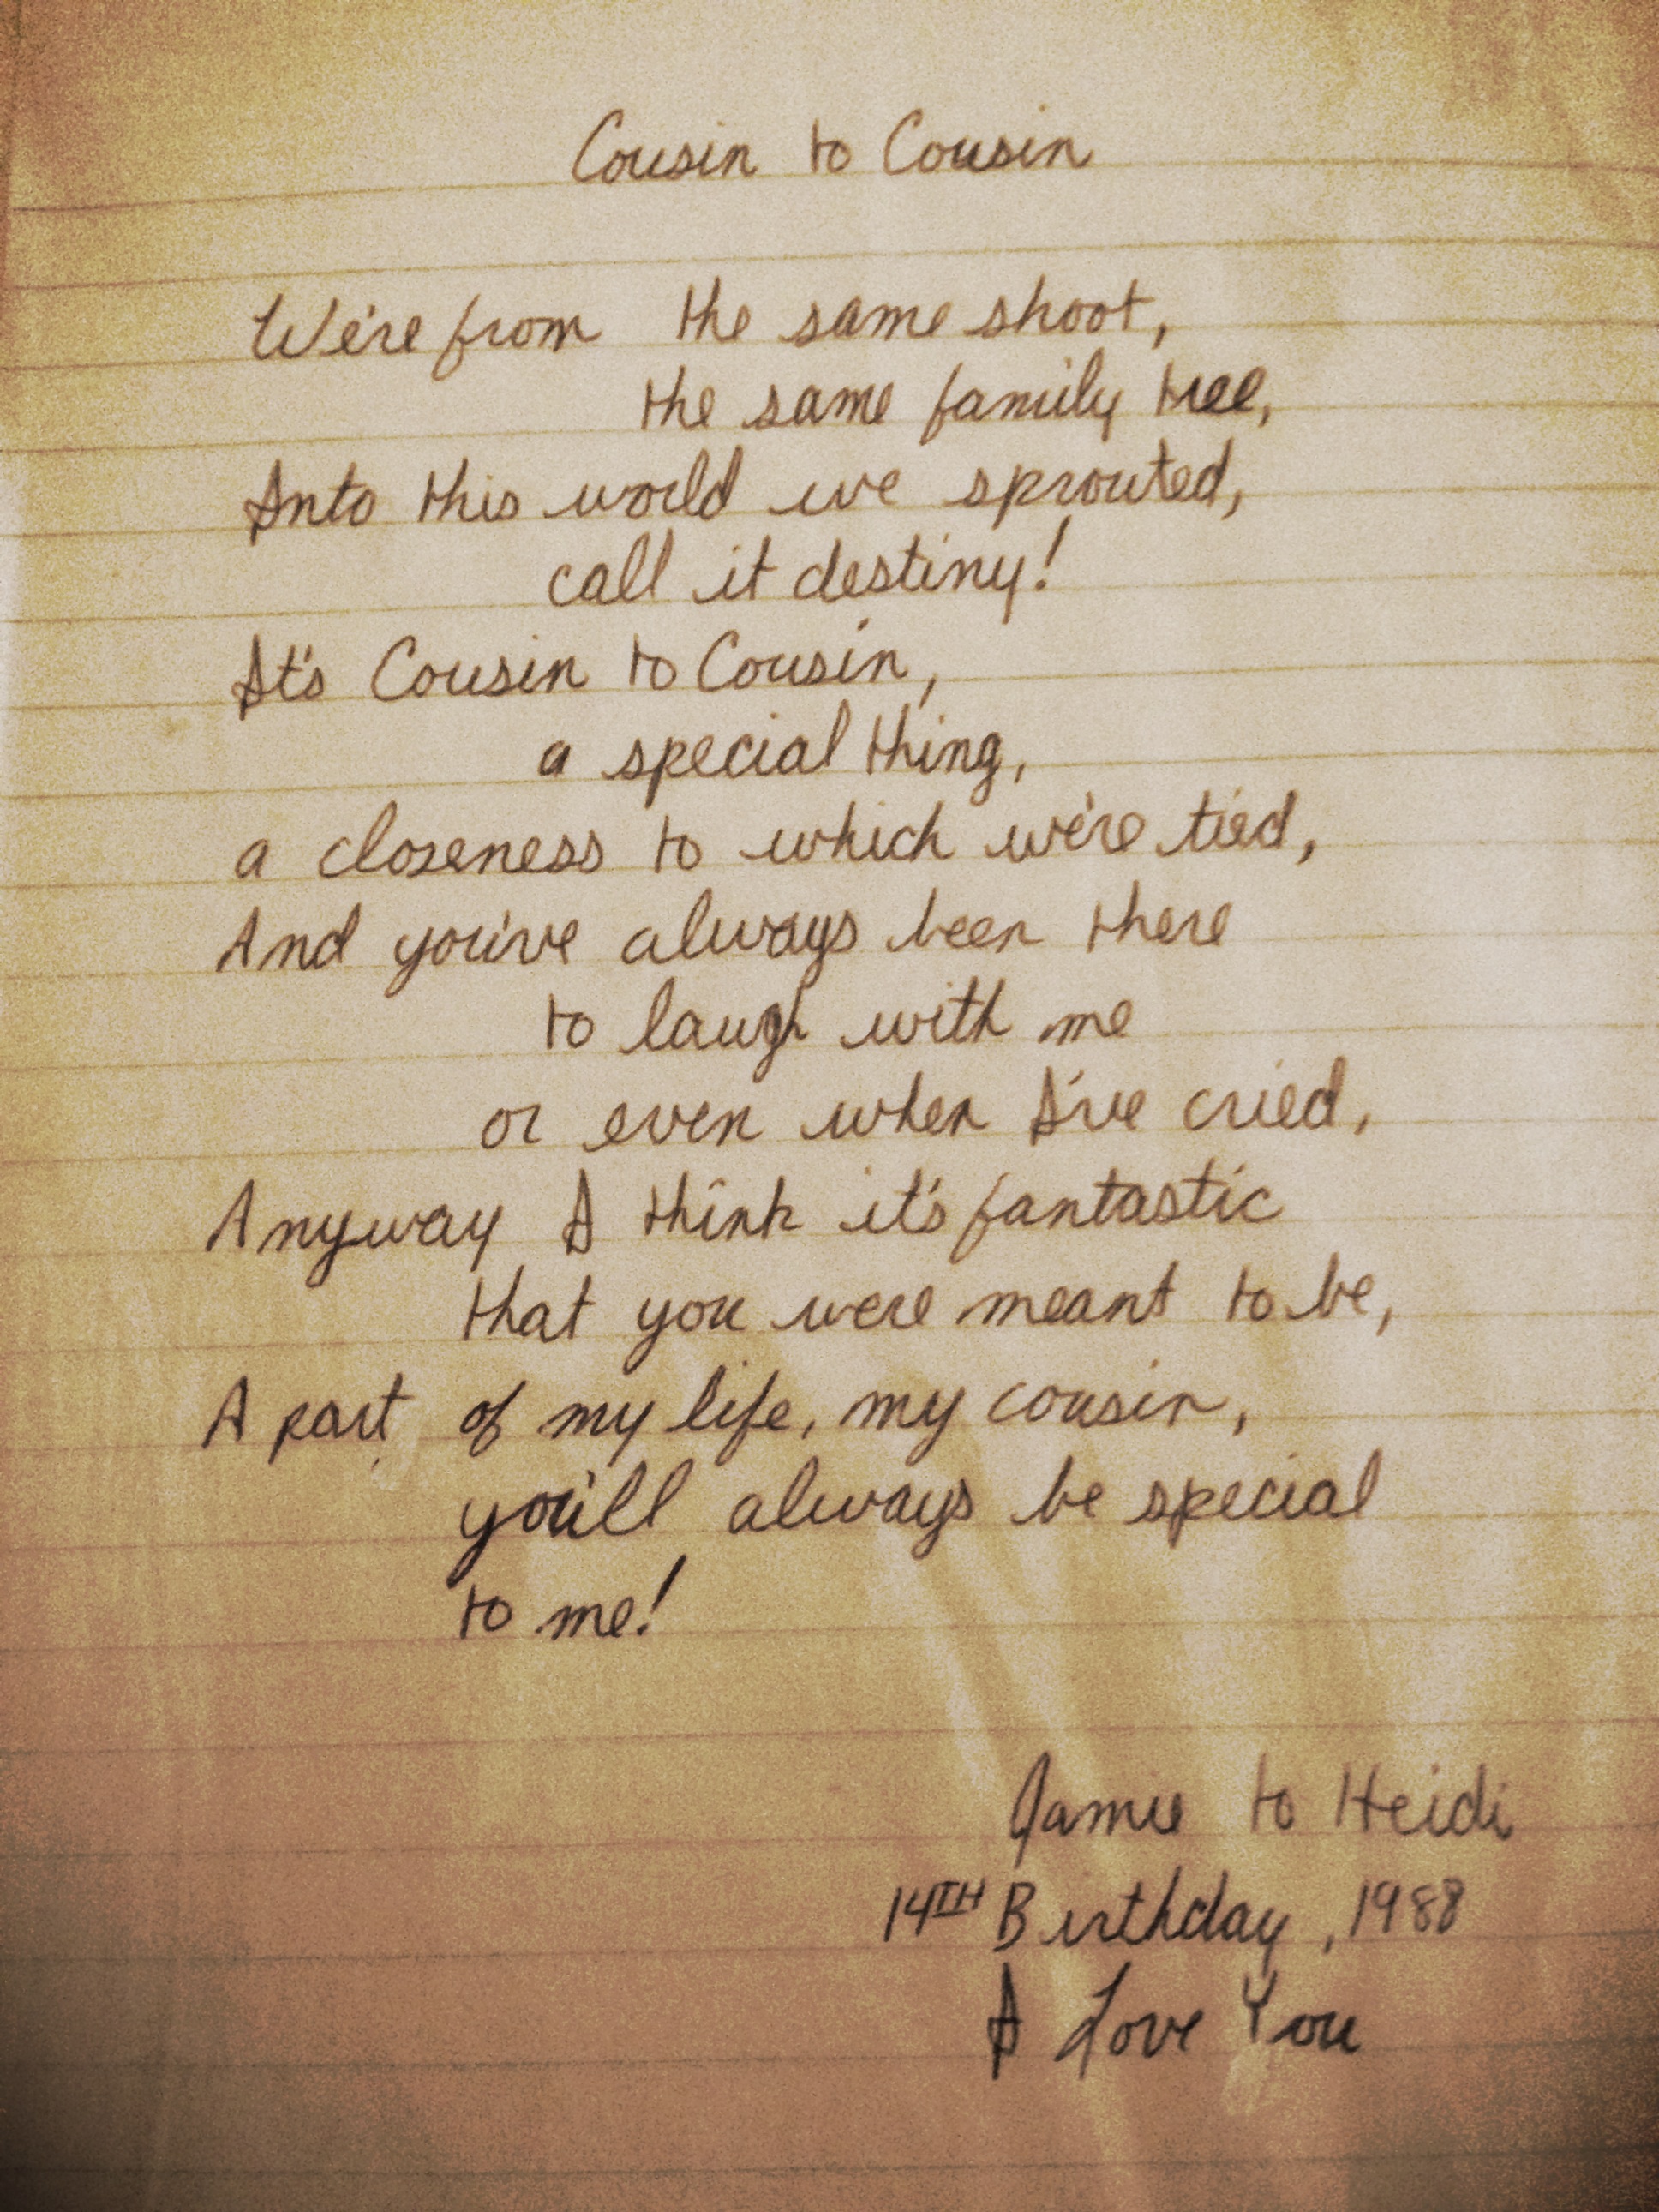 Cousin to Cousin
We're from the same shoot,
the same family tree,
Into this world we sprouted,
call it destiny!
It's Cousin to Cousin,
a special thing,
a closeness to which we're tied,
And you've always been there
to laugh with me
or even when I've cried,
Anyway I think it's fantastic
that you were meant to be,
A part of my life, my cousin,
you'll always be special
to me!
Jamie to Heidi
14TH Birthday, 1988
I Love You